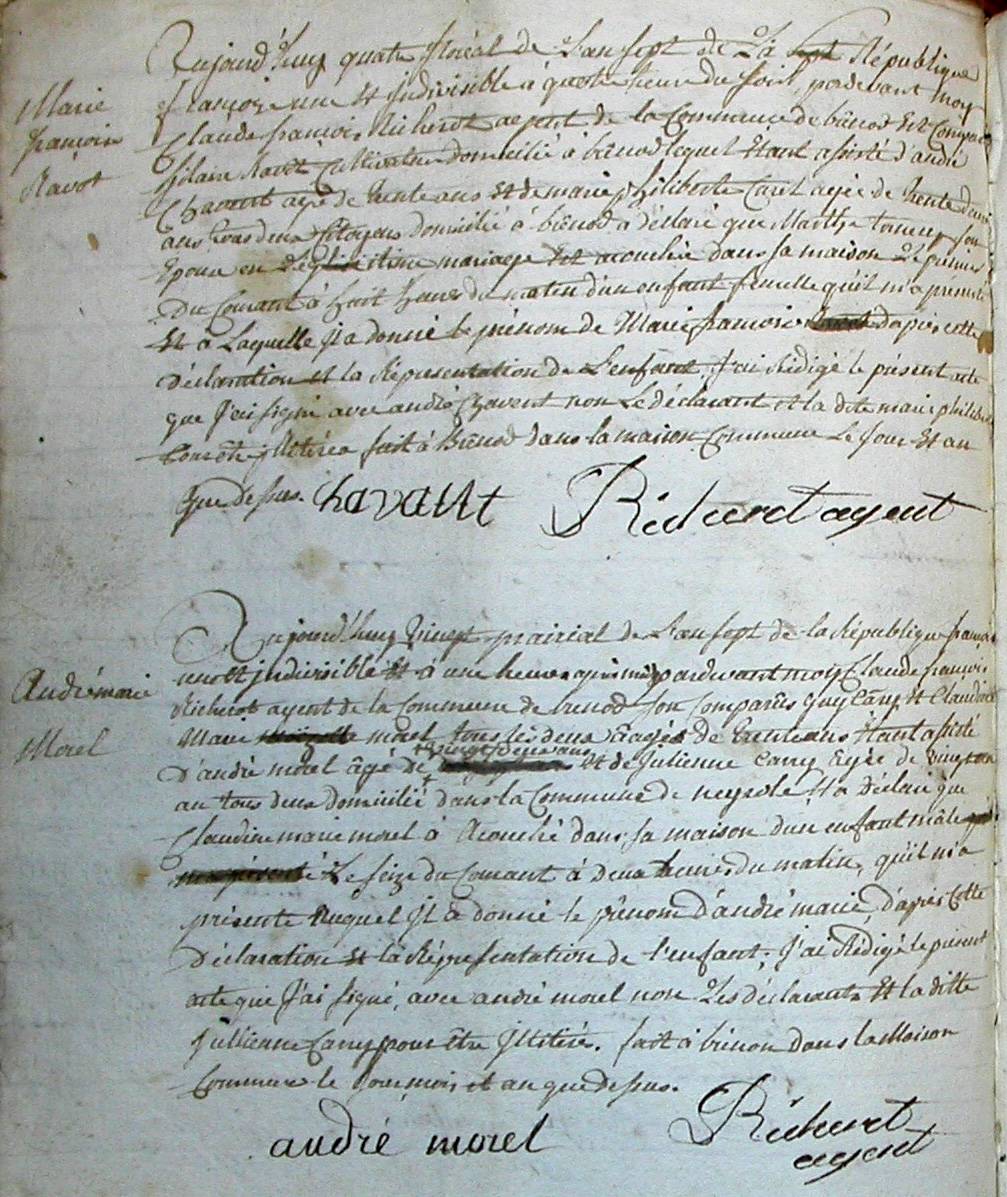 Marie
françoise
Ravot
Aujourd'huy quatre floréal de L'an sept de La sept République
françoise une et Indivisible à quatre heure du soir, pardevant moy
Claude françois Richerot agent de la Commune de bénod Est Comparu
hilaire Ravot Cultivateur domicilié à bénod lequel étant assisté d'andré
Chavent agé de trente ans et de marie philiberte Caret agée de trente deux
ans tous deux Citoyens domicilié à bénod, à déclaré que Marthe son
Epouse en légitime mariage Est acouchée dans sa maison Le premier
Du Courant à huit heures du matin d'un enfant femelle qu'il m'a presenté
Et à Laquelle Il a donné le prénom de Marie françoise d'après cette
déclaration et la Représentation de L'enfant J'ai Rédigé le présent acte
que J'ai signé avec andré Chavent non Le déclarant et la dite marie philiberte
pour être illitérée fait à Bénod dans la maison Commune Le Jour Et an
Que dessus. chavant Richerot agent
André marie
Morel
Aujourd'huy vingt prairial de L'an sept de la République française
une et indivisible et à une heure après midy pardevant moy Claude françois
Richerot agent de la Commune de benod son Comparus Guy Cany Et Claudine
Marie morel tous les deux âgés de trente ans étant assisté
D'andré morel âgé de vingt deux ans et de Julienne Cany Egée de vingt un
an tous deux domicilié dans la Commune de neyrole Il a déclaré que
Claudine marie morel à Acouché dans sa maison d'un enfant mâle
m'a présenté Le seize du Courant à deux heures du matin, qu'il m'a
présenté auquel Il a donné le prénom d'andré marie, d'après Cette
Déclaration et la Représentation de l'enfant, J'ai Rédigé le présent
acte que J'ai signé, avec andré morel non Les déclarants Et la ditte
Jullienne Cany pour être Illitéré. fait à bénon dans la Maison
Commune le Jour, mois et an que dessus.
andré morel Richerot
agent